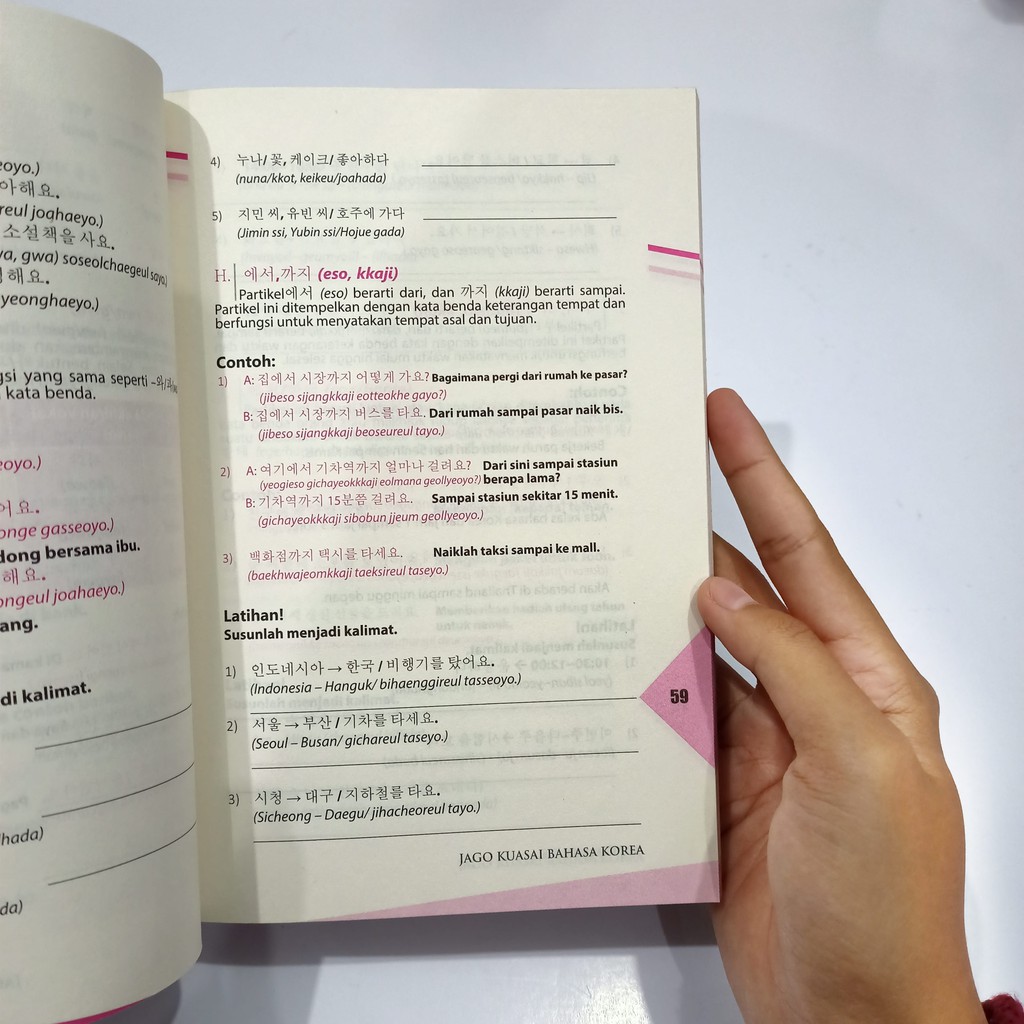 eoyo.)
아해요.
reul joahaeyo.)
소설책을 사요.
gwa) soseolchaegeul sayo.)
해요.
yeonghaeyo.)
gsi yang sama seperti -와/과
kata benda.
eoyo.)
어요.
onge gasseoyo.)
dong bersama ibu.
해요.
ongeul joahaeyo.)
ang.
di kalimat.
lhada)
da)
4) 누나/ 꽃, 케이크/ 좋아하다
(nuna/kkot, keikeu/joahada)
5) 지민 씨, 유빈 씨/ 호주에 가다
(Jimin ssi, Yubin ssi/Hojue gada)
H. 에서,까지 (eso, kkaji)
Partikel에서 (eso) berarti dari, dan 까지 (kkaji) berarti sampai.
Partikel ini ditempelkan dengan kata benda keterangan tempat dan
berfungsi untuk menyatakan tempat asal dan tujuan.
Contoh:
1) A: 집에서 시장까지 어떻게 가요? Bagaimana pergi dari rumah ke pasar?
(jibeso sijangkkaji eotteokhe gayo?)
B: 집에서 시장까지 버스를 타요. Dari rumah sampai pasar naik bis.
(jibeso sijangkkaji beoseureul tayo.)
2) A: 여기에서 기차역까지 얼마나 걸려요? Dari sini sampai stasiun
(yeogieso gichayeokkkaji eolmana geollyeoyo?) berapa lama?
B: 기차역까지 15분쯤 걸려요. Sampai stasiun sekitar 15 menit.
(gichayeokkkaji sibobun jjeum geollyeoyo.)
3) 백화점까지 택시를 타세요. Naiklah taksi sampai ke mall.
(baekhwajeomkkaji taeksireul taseyo.)
Latihan!
Susunlah menjadi kalimat.
1) 인도네시아 → 한국 / 비행기를 탔어요.
(Indonesia – Hanguk/ bihaenggireul tasseoyo.)
2) 서울 → 부산 / 기차를 타세요.
(Seoul – Busan/ gichareul taseyo.)
3) 시청 → 대구 / 지하철를 타요.
(Sicheong – Daegu/ jihacheoreul tayo.)
59
JAGO KUASAI BAHASA KOREA